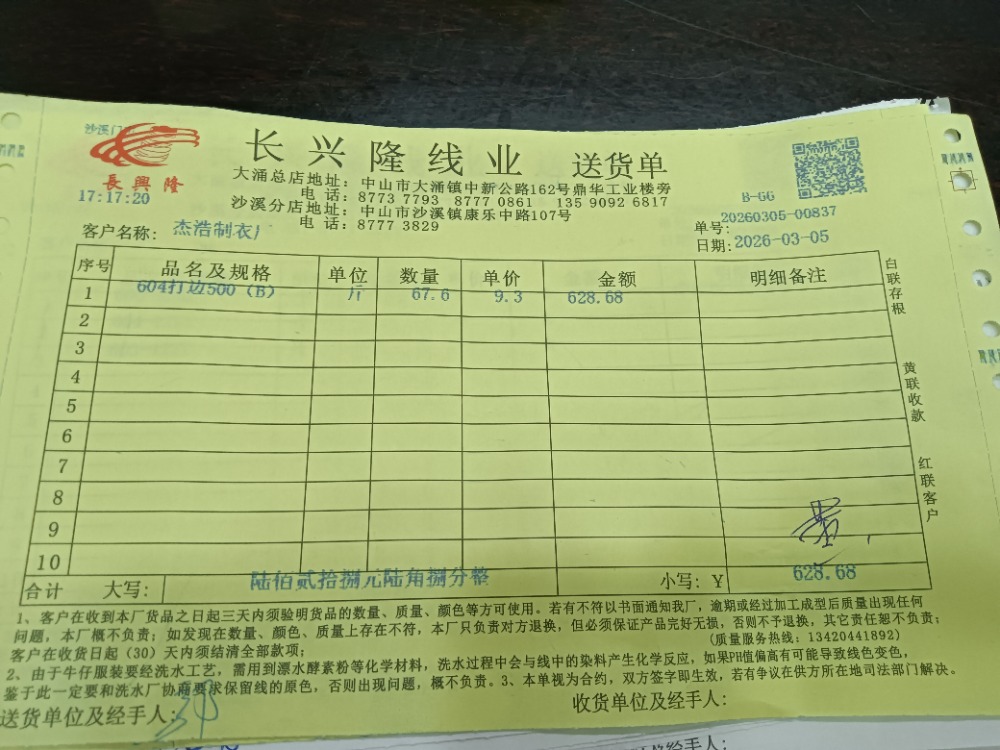 沙溪门
長興隆
17:17:20
长兴隆线业 送货单
大涌总店地址：中山市大涌镇中新公路162号鼎华工业楼旁
电话：8773 7793 8777 0861 135 9092 6817
沙溪分店地址：中山市沙溪镇康乐中路107号
电话：8777 3829
B-GG
单号：20260305-00837
日期：2026-03-05
客户名称：杰浩制衣厂
序号 品名及规格 单位 数量 单价 金额 明细备注
1 604打边500（B） 斤 67.6 9.3 628.68
2
3
4
5
6
7
8
9
10
合计 大写：陆佰贰拾捌元陆角捌分整 小写：Y 628.68
白联存根
黄联收款
红联客户
1、客户在收到本厂货品之日起三天内须验明货品的数量、质量、颜色等方可使用。若有不符以书面通知我厂，逾期或经过加工成型后质量出现任何
问题，本厂概不负责；如发现在数量、颜色、质量上存在不符，本厂只负责对方退换，但必须保证产品完好无损，否则不予退换，其它责任恕不负责；
客户在收货日起（30）天内须结清全部款项； （质量服务热线：13420441892）
2、由于牛仔服装要经洗水工艺，需用到漂水酵素粉等化学材料，洗水过程中会与线中的染料产生化学反应，如果PH值偏高有可能导致线色变色，
鉴于此一定要和洗水厂协商要求保留线的原色，否则出现问题，概不负责。3、本单视为合约，双方签字即生效，若有争议在供方所在地司法部门解决。
送货单位及经手人： 收货单位及经手人：